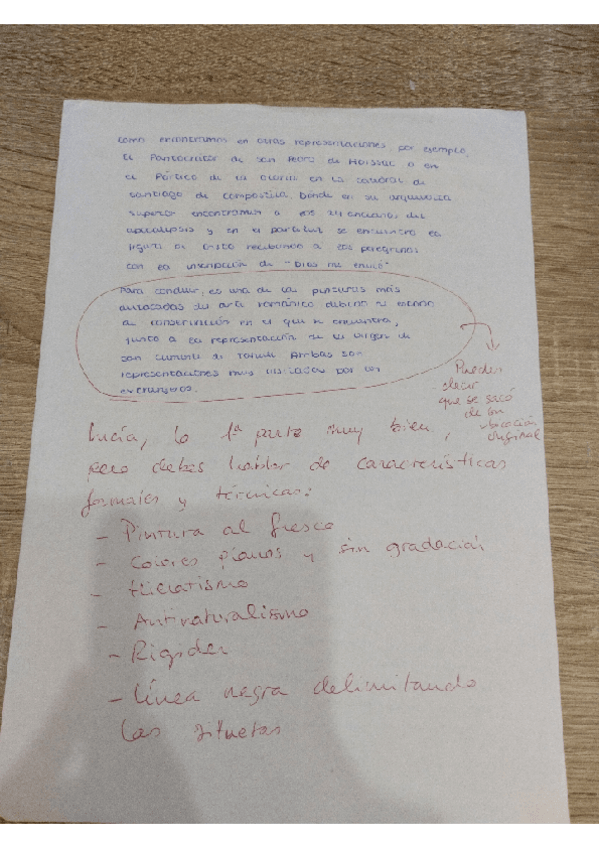 como encontramos en otras representaciones por ejemplo,
el Pantocrator de San Pedro de Moissac o en
el Pórtico de la Gloria en la catedral de
Santiago de compostela. Dónde en su arquivolta
superior encontramos a los 24 ancianos del
apocalipsis y en el parteluz se encuentra la
figura de recibiendo a los peregrinos
con la inscripción de "Dios me envió"
Para concluir, es una de las pinturas más
del arte románico debido al estado
de conservación en el que se encuentra,
junto a la representación de la virgen de
san clemente de Tahull. Ambas son
representaciones muy visitadas por los
extranjeros.
Puedes
decir
que se sacó
de su
ubicación
original
Lucía, la 1ª parte muy bien,
pero debes hablar de características
formales y técnicas:
- Pintura al fresco
- Colores planos y sin gradación
- Hieratismo
- Antinaturalismo
- Rigidez
- Línea negra delimitando
las siluetas